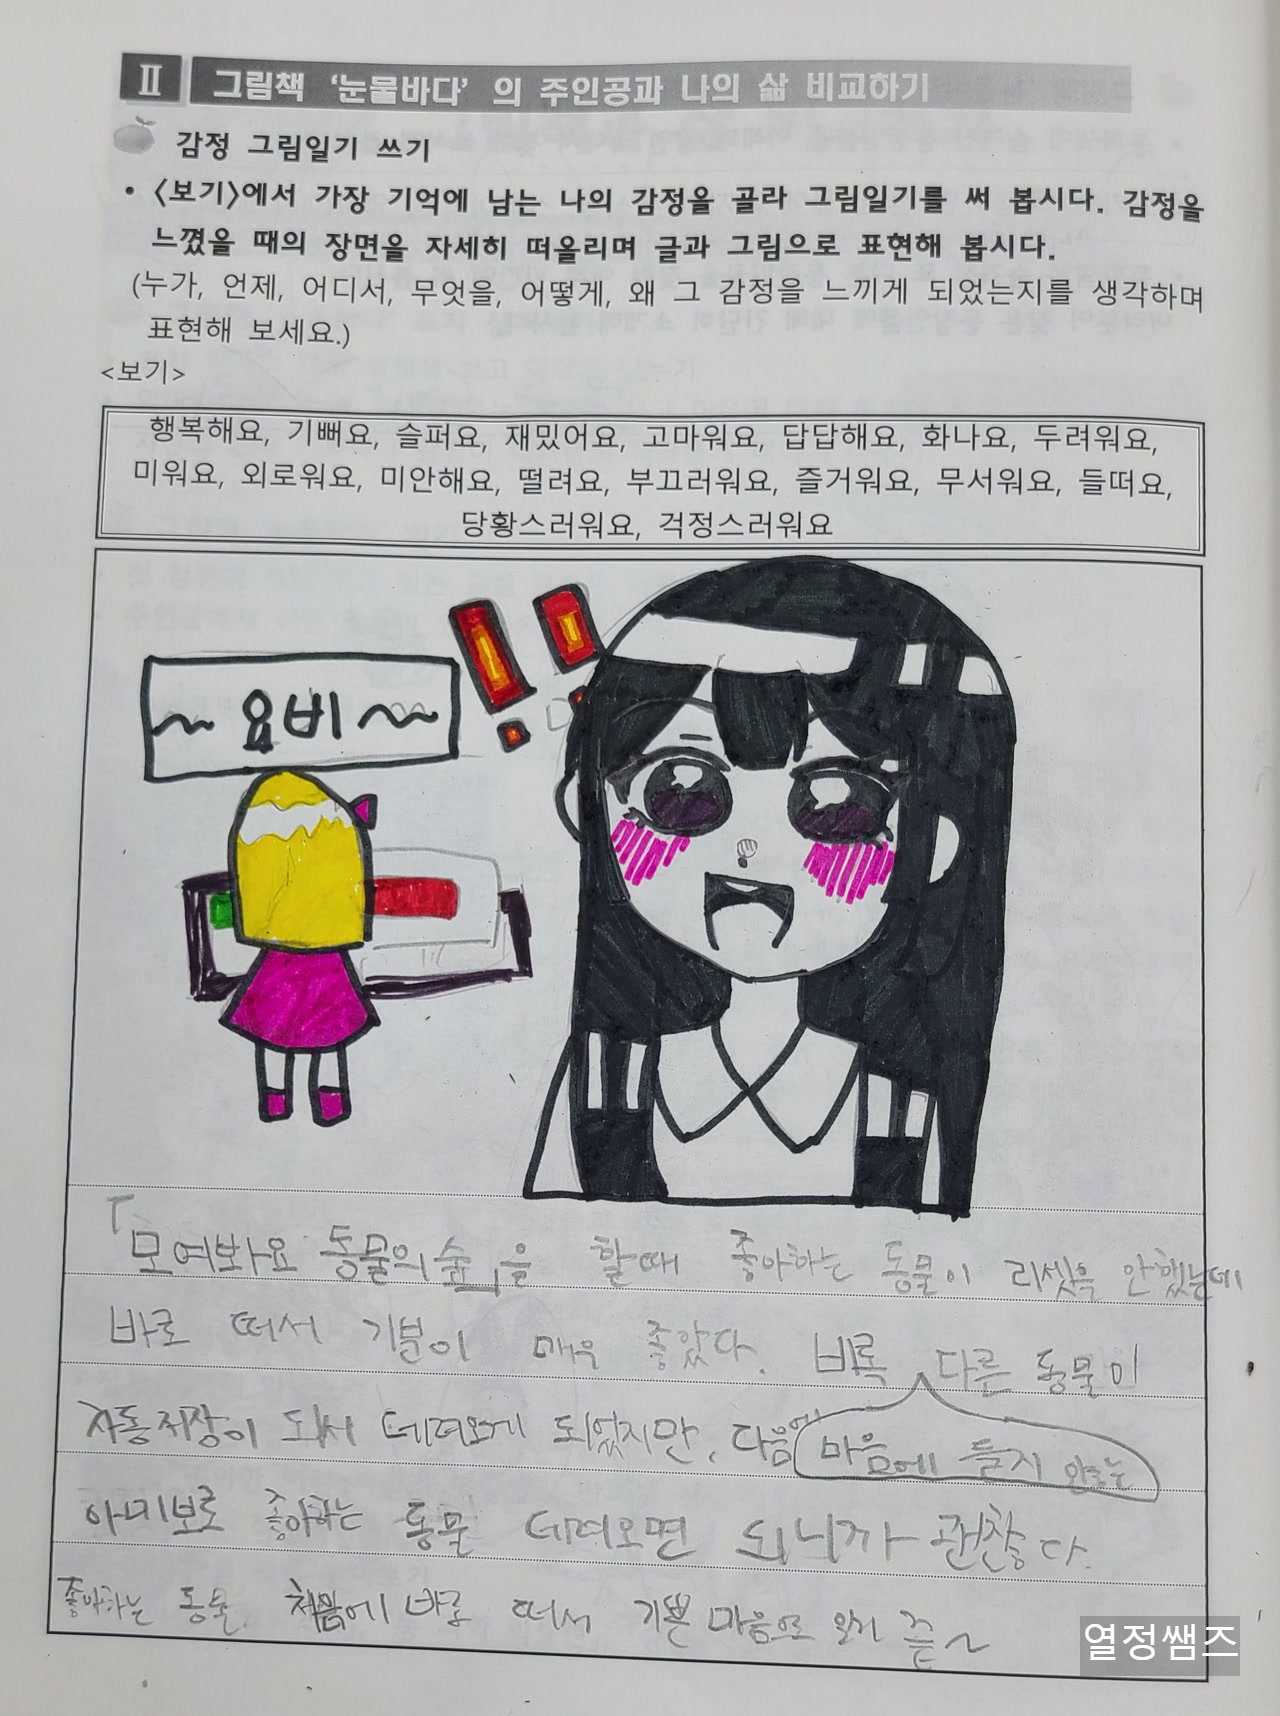 Ⅱ 그림책 '눈물바다' 의 주인공과 나의 삶 비교하기
감정 그림일기 쓰기
• <보기>에서 가장 기억에 남는 나의 감정을 골라 그림일기를 써 봅시다. 감정을
느꼈을 때의 장면을 자세히 떠올리며 글과 그림으로 표현해 봅시다.
(누가, 언제, 어디서, 무엇을, 어떻게, 왜 그 감정을 느끼게 되었는지를 생각하며
표현해 보세요.)
<보기>
행복해요, 기뻐요, 슬퍼요, 재밌어요, 고마워요, 답답해요, 화나요, 두려워요,
미워요, 외로워요, 미안해요, 떨려요, 부끄러워요, 즐거워요, 무서워요, 들떠요,
당황스러워요, 걱정스러워요
!!
~ 요비 ~
「모여봐요 동물의 숲」을 할때 좋아하는 동물이 리셋을 안했는데
바로 떠서 기분이 매우 좋았다. 비록 다른 동물이
자동저장이 되서 데려오게 되었지만, 다음에 마음에 들지 않는
아미보로 좋아하는 동물 데려오면 되니까 괜찮다.
좋아하는 동물 처음에 바로 떠서 기쁜 마음으로